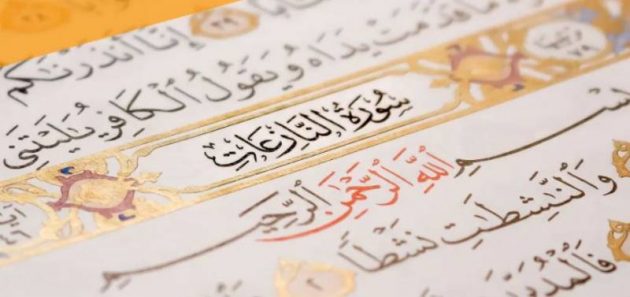 ٣٩ إِنَّآ أَنذَرْنَٰكُمْ
مَا قَدَّمَتْ يَدَاهُ وَيَقُولُ ٱلْكَافِرُ يَٰلَيْتَنِى
سُورَةُ النَّازِعَاتِ
٤٦
بِسْمِ اللَّهِ الرَّحْمَٰنِ الرَّحِيمِ
وَٱلنَّٰشِطَٰتِ نَشْطًا ٢